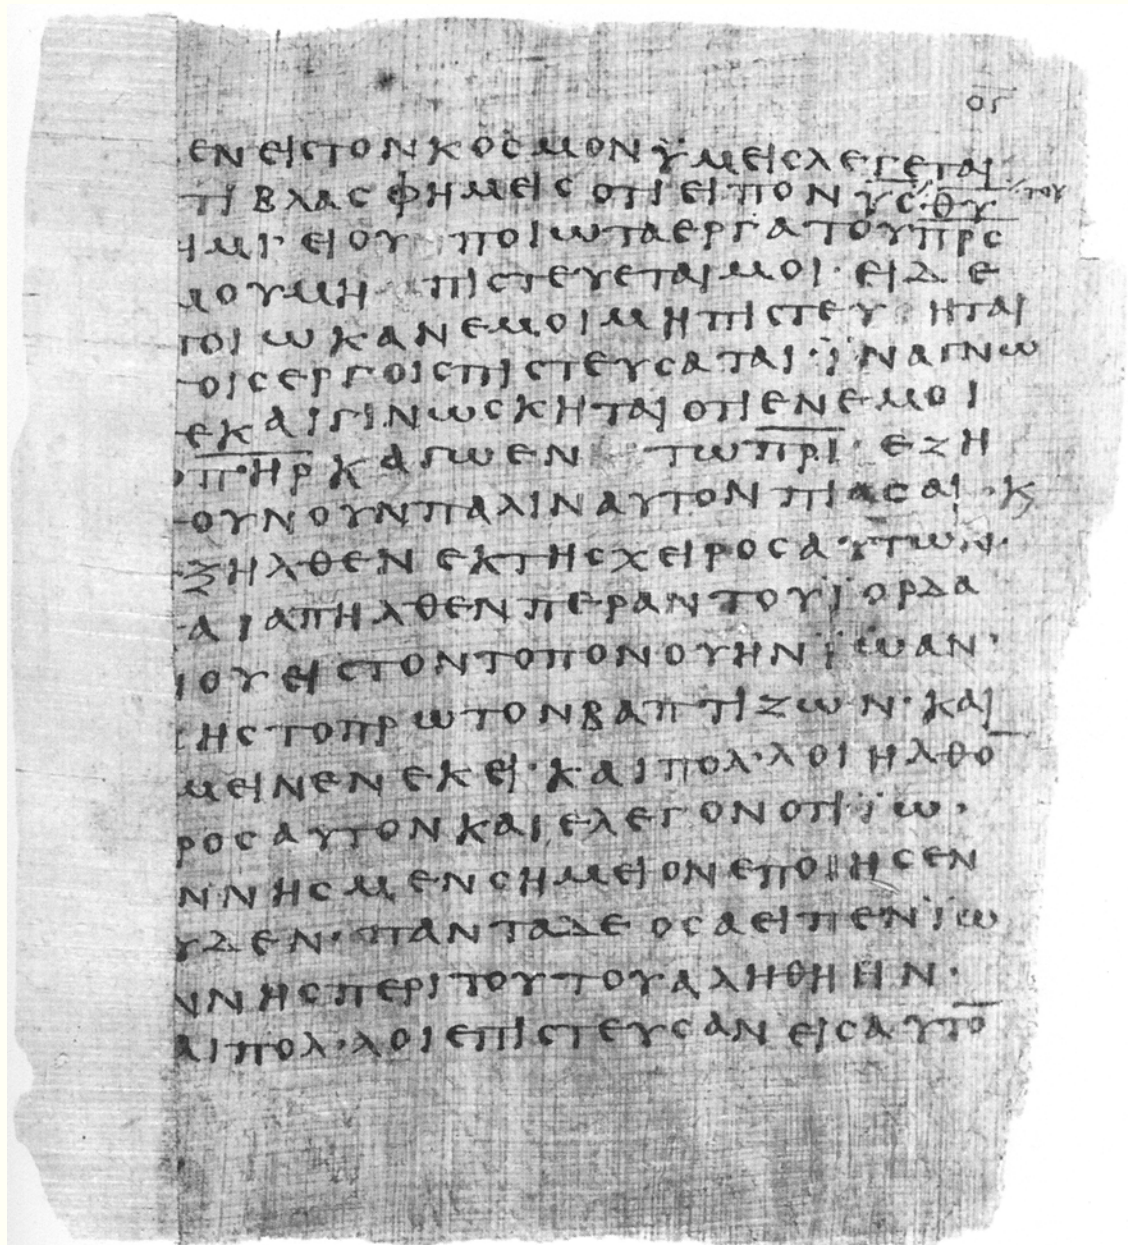 ΟΓ
ΕΝΕΙϹΤΟΝΚΟϹΜΟΝΫΜΕΙϹΛΕΓΕΤΑΙ
ΤΙΒΛΑϹΦΗΜΕΙϹΟΤΙΕΙΠΟΝΥ̅Ϲ̅·ΤΟΥΘ̅Υ̅
ΙΜΙ·ΕΙΟΥΠΟΙΩΤΑΕΡΓΑΤΟΥΠ̅Ρ̅Ϲ̅
ΜΟΥΜΗΠΙϹΤΕΥΕΤΑΙΜΟΙ·ΕΙΔΕ
ΠΟΙΩΚΑΝΕΜΟΙΜΗΠΙϹΤΕΥΗΤΑΙ
ΤΟΙϹΕΡΓΟΙϹΠΙϹΤΕΥϹΑΤΑΙ·ΪΝΑΓΝΩ
ΤΕΚΑΙΓΙΝΩϹΚΗΤΑΙΟΤΙΕΝΕΜΟΙ
ΟΠ̅Η̅Ρ̅ΚΑΓΩΕΝΤΩΠ̅Ρ̅Ι̅·ΕΖΗ
ΤΟΥΝΟΥΝΠΑΛΙΝΑΥΤΟΝΠΙΑϹΑΙ·Κ
ΕΞΗΛΘΕΝΕΚΤΗϹΧΕΙΡΟϹΑΥΤΩΝ·
ΚΑΙΑΠΗΛΘΕΝΠΕΡΑΝΤΟΥΪΟΡΔΑ
ΝΟΥΕΙϹΤΟΝΤΟΠΟΝΟΥΗΝΪΩΑΝ·
ΝΗϹΤΟΠΡΩΤΟΝΒΑΠΤΙΖΩΝ·ΚΑΙ
ΜΕΙΝΕΝΕΚΕΙ·ΚΑΙΠΟΛ·ΛΟΙΗΛΘΟ̅
ΡΟϹΑΥΤΟΝΚΑΙΕΛΕΓΟΝΟΤΙΪΩ·
ΝΝΗϹΜΕΝϹΗΜΕΙΟΝΕΠΟΙΗϹΕΝ
ΥΔΕΝ·ΠΑΝΤΑΔΕΟϹΑΕΙΠΕΝΪΩ
ΝΝΗϹΠΕΡΙΤΟΥΤΟΥΑΛΗΘΗΗΝ·
ΑΙΠΟΛ·ΛΟΙΕΠΙϹΤΕΥϹΑΝΕΙϹΑΥΤΟ̅